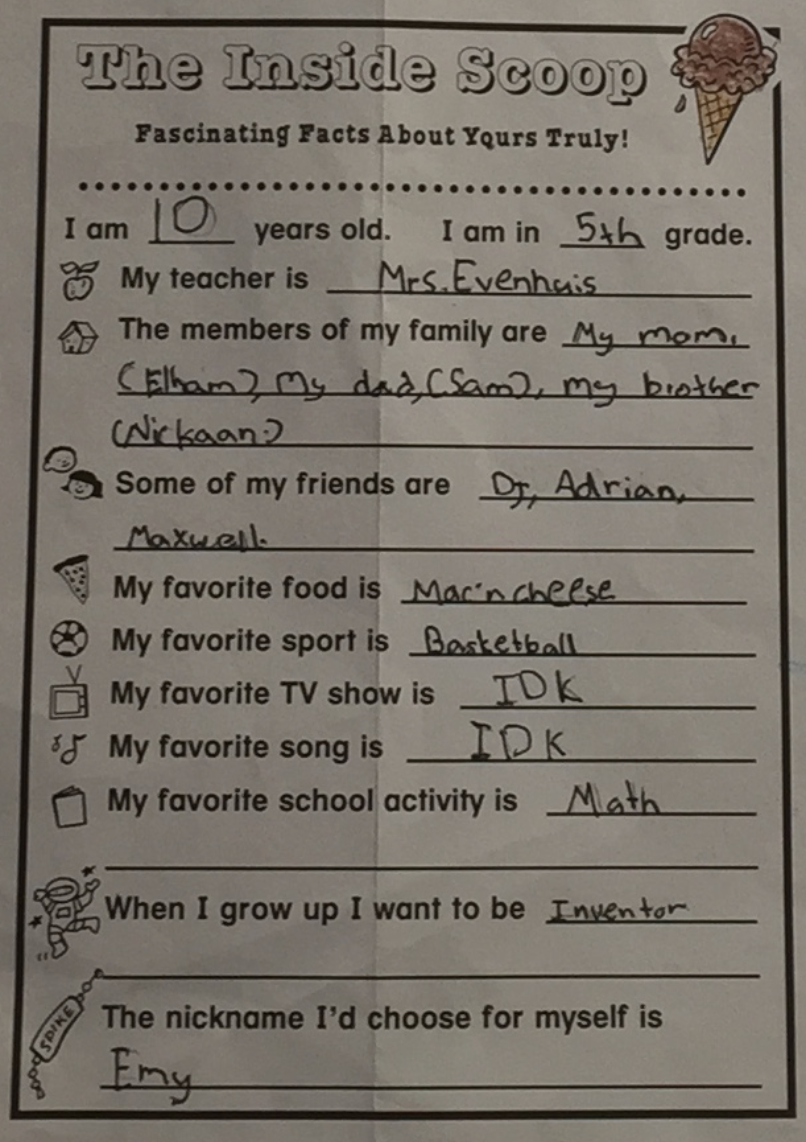 The Inside Scoop
Fascinating Facts About Yours Truly!
I am 10 years old. I am in 5th grade.
My teacher is Mrs. Evenhuis
The members of my family are My mom,
(Elham), My dad,(Sam), my brother
(Nickaan:)
Some of my friends are Dj, Adrian,
Maxwell.
My favorite food is Mac'n cheese
My favorite sport is Basketball
My favorite TV show is IDK
My favorite song is IDK
My favorite school activity is Math
When I grow up I want to be Inventor
SPIKE
The nickname I'd choose for myself is
Emy